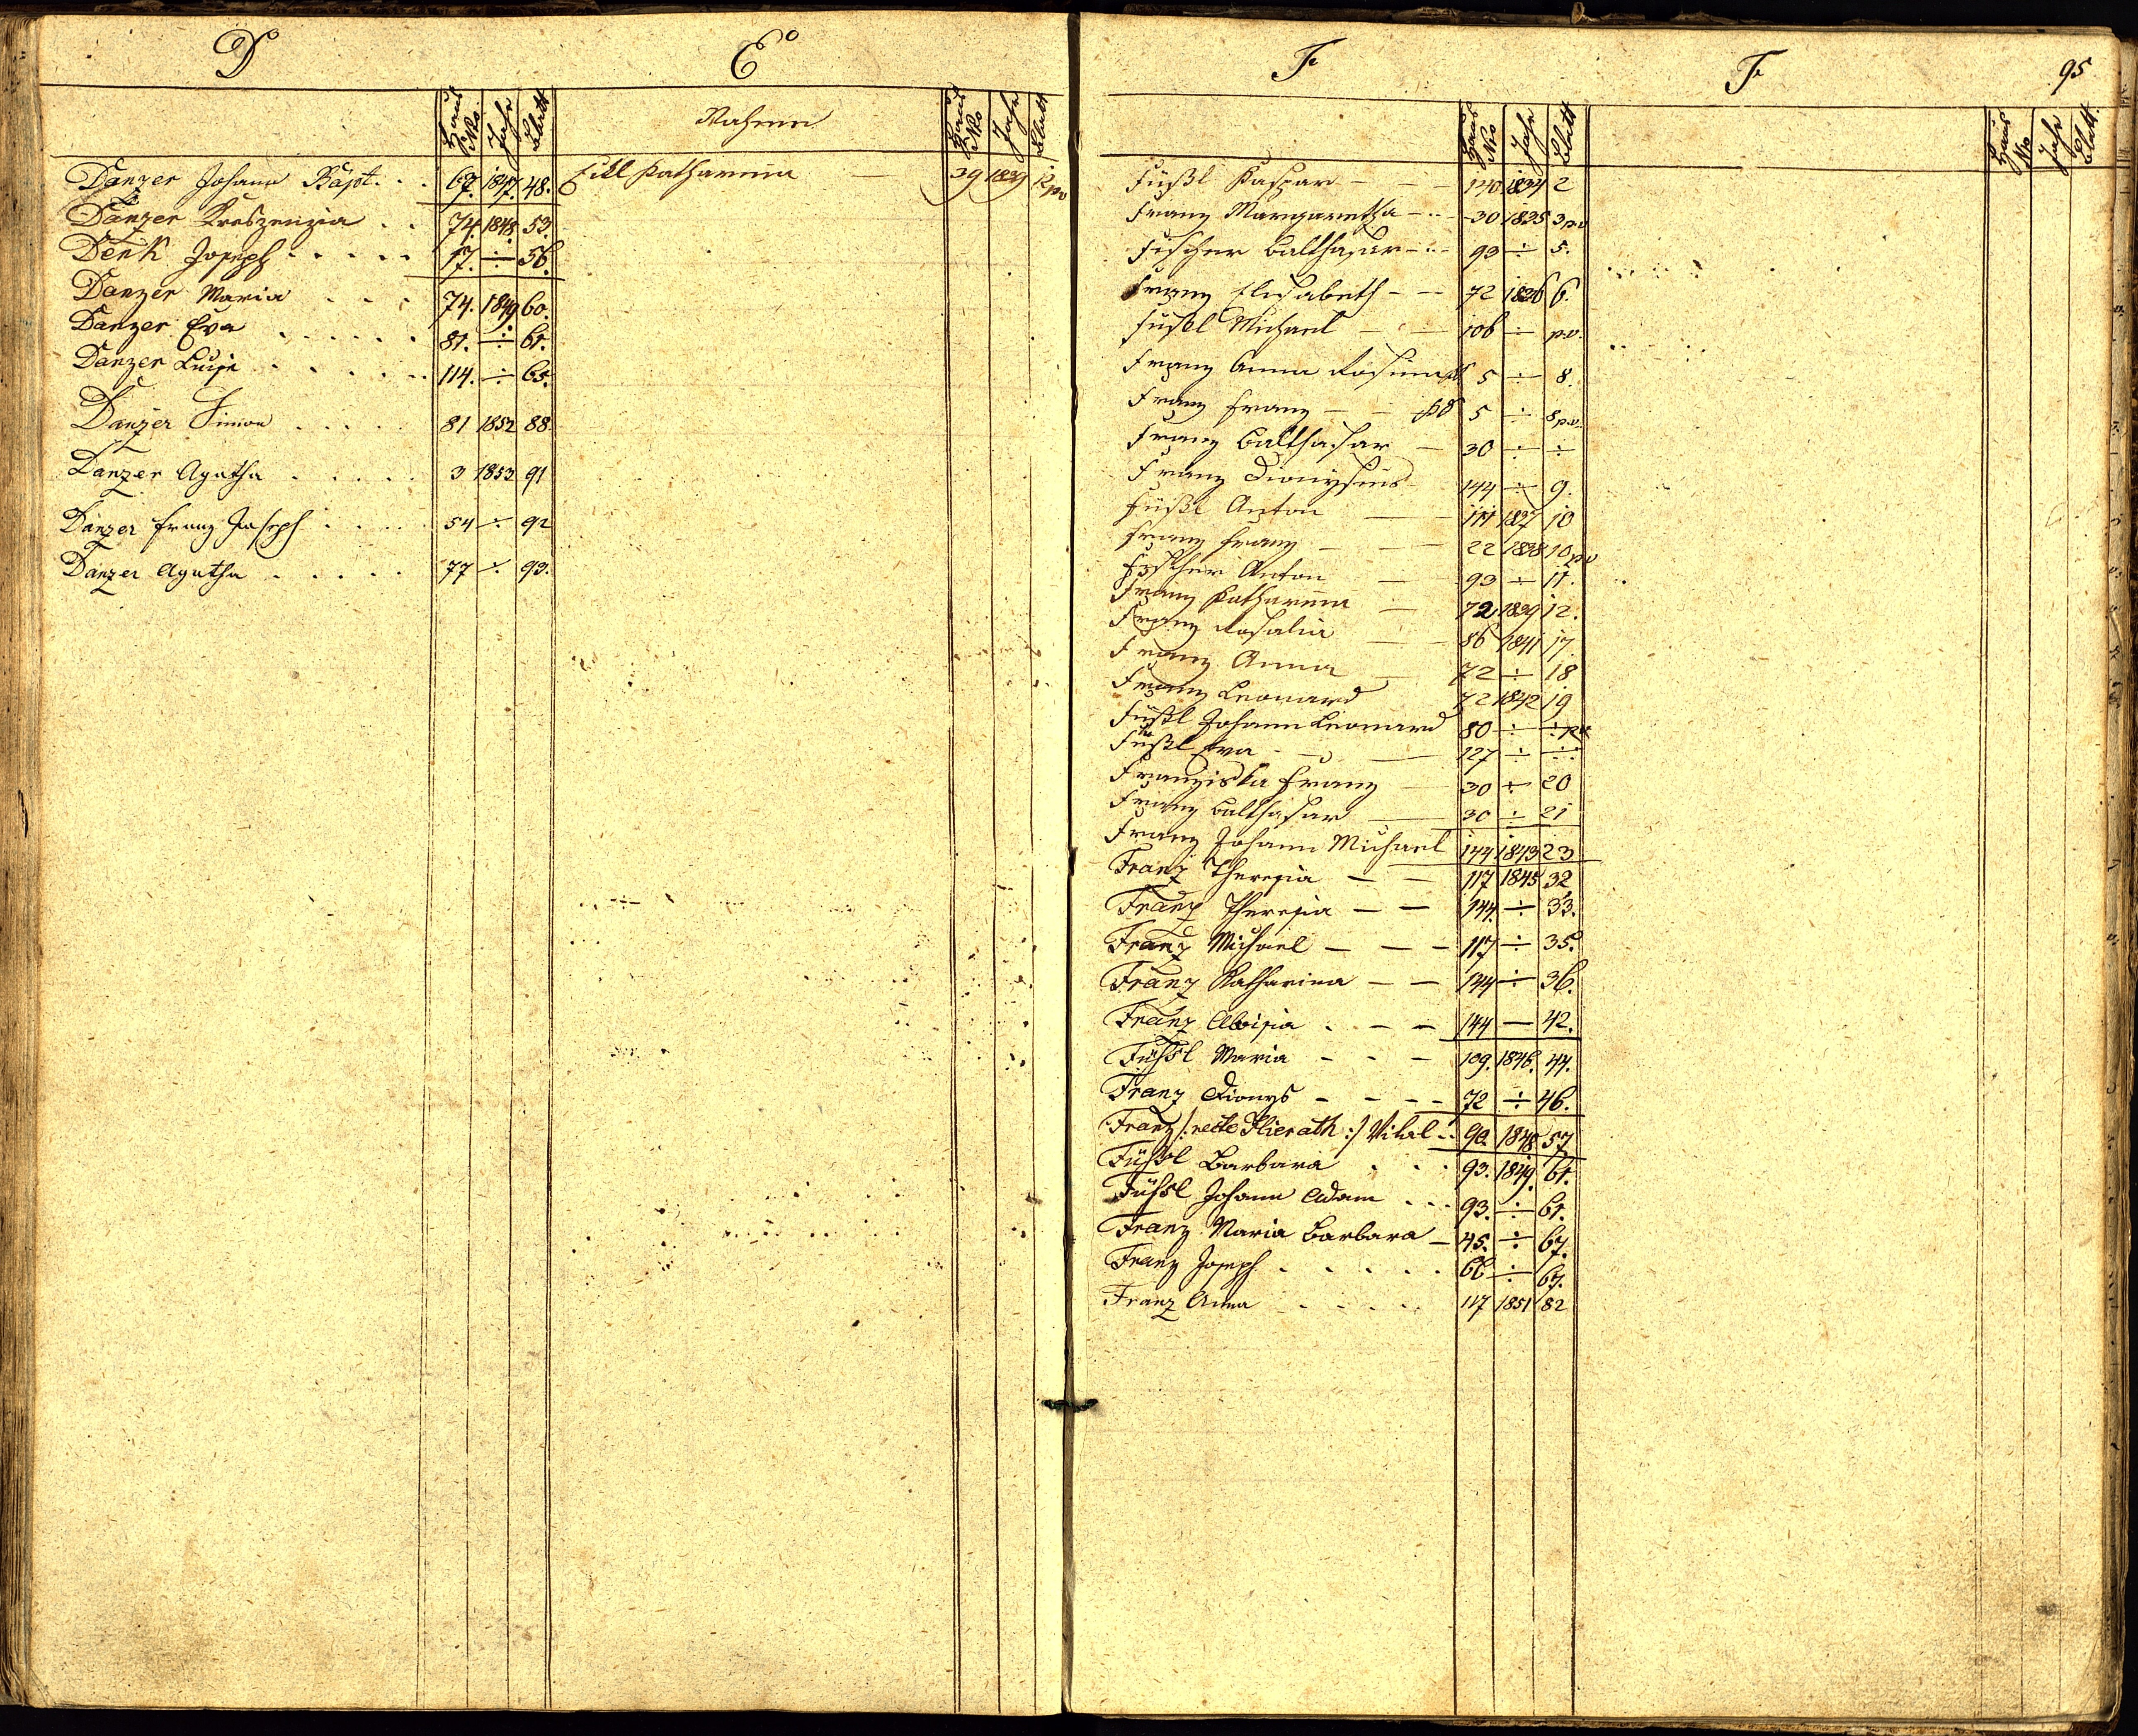 D
Haus No. Jahr Blatt
Danzer Johann Bapt. . . 67. 1847. 48.
Danzer Kreszenzia . . 74. 1848. 53.
Denk Joseph . . . . . 17. ÷ 56.
Danzer Maria . . . 74. 1849 60.
Danzer Eva . . . . . . 81. ÷ 61.
Danzer Luise . . . . . . 114. ÷ 65.
Danzer Simon . . . . . 81 1852 88.
Danzer Agatha . . . . . 3 1853 91
Danzer Franz Joseph . . . . 54 ÷ 92
Danzer Agatha . . . . . 77 ÷ 93.
E
Nahmen Haus No Jahr Blatt
Eikl Katharina — 39 1839 12 pv
F
Haus No Jahr Blatt
Füßl Kaspar - - - 140 1834 2
Franz Margaretha - .. - 30 1835 3 pv
Fischer Balthasar - .. - 93 ÷ 5.
Franz Elisabeth - - - 72 1836 6.
Füßl Michael - - - 106 ÷ p.v.
Franz Anna Rosina 5 ÷ 8.
Franz Franz - - 5 ÷ 8 p.v.
Franz Balthasar - 30 ÷ ÷
Franz Dionysius 144 ÷ 9.
Füßl Anton — 1837 10
Franz Franz - - - 22 1838 10 pv
Fischer Anton — 93 ÷ 11.
Franz Katharina — 72 1839 12.
Franz Rosalia — 86 1841 17.
Franz Anna — 72 ÷ 18
Franz Leonard 72 1842 19
Füßl Johann Leonard 80 ÷ ÷ pv
Füßl Eva - — 127 ÷ ÷
Franziska Franz — 30 ÷ 20
Franz Balthasar — 30 ÷ 21
Franz Johann Michael 144 1843 23
Franz Theresia — — 117 1845 32
Franz Theresia — — 144. ÷ 33.
Franz Michael — — - 117 ÷ 35.
Franz Katharina — — 144 ÷ 36.
Franz Aloisia . - — 144 — 42.
Füßsl Maria - - - 109. 1846. 44.
Franz Dionys - - - - 72 ÷ 46.
Franz /: recte Hierath :/ Vital .. 90. 1848 57
Füßsl Barbara . . . 93. 1849. 61.
Füßsl Johann Adam . . . 93. ÷ 61.
Franz Maria Barbara — 45. ÷ 67.
Franz Joseph . . . . . 66 ÷ 67.
Franz Anna . . . . 117 1851 82
F
95
Haus No Jahr Blatt.